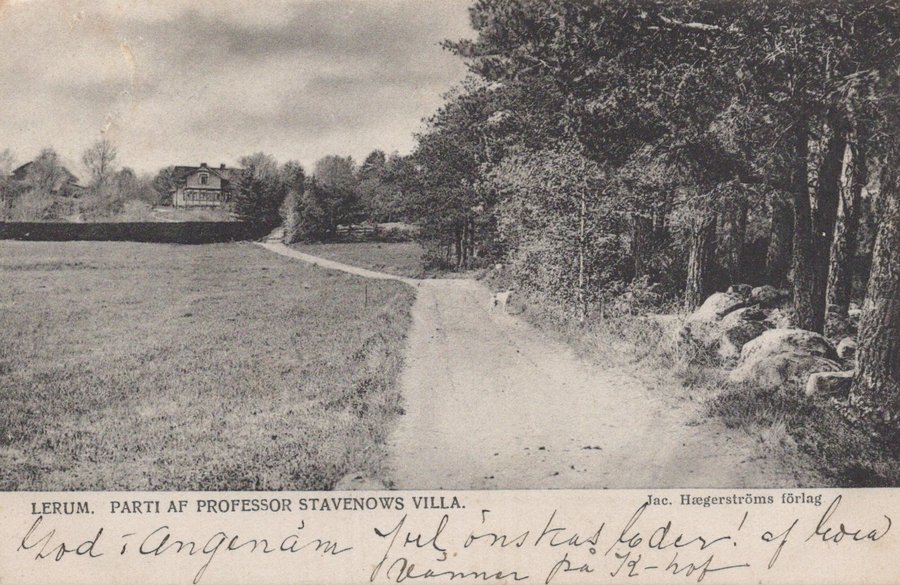 LERUM. PARTI AF PROFESSOR STAVENOWS VILLA.
Jac. Hægerströms förlag
God o Angenäm Jul önskas Eder! af
Vänner på K-hof